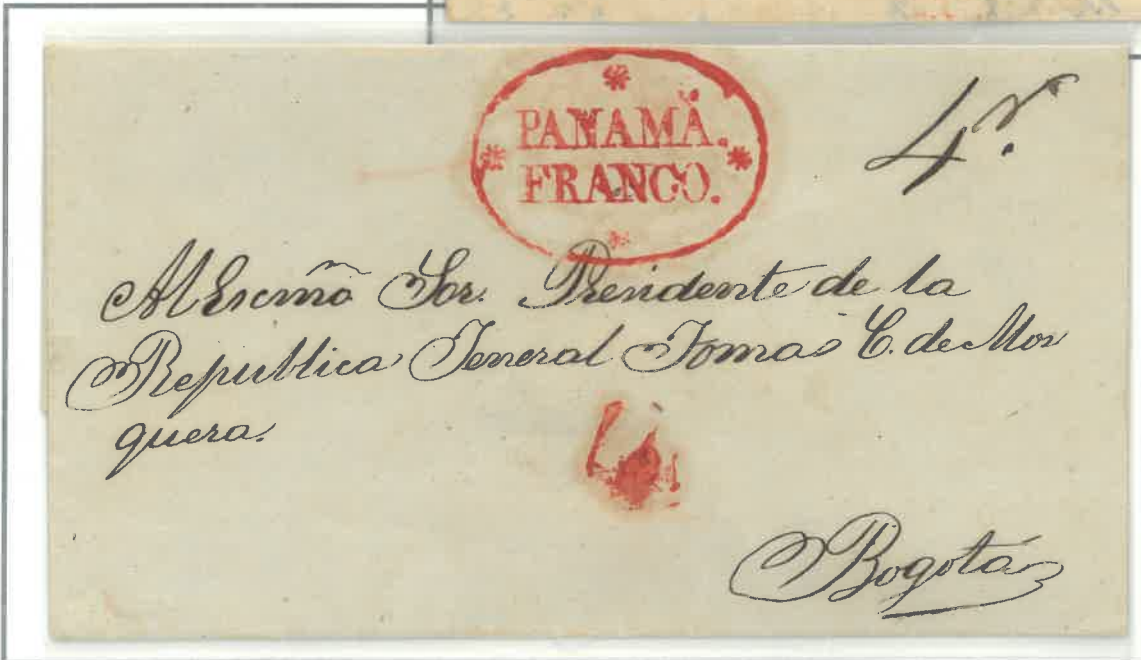 PANAMÁ.
FRANCO.
4 rs.
Al Excmõ Sor. Presidente de la
Republica Jeneral Tomas C. de Mos
quera.
Bogotá